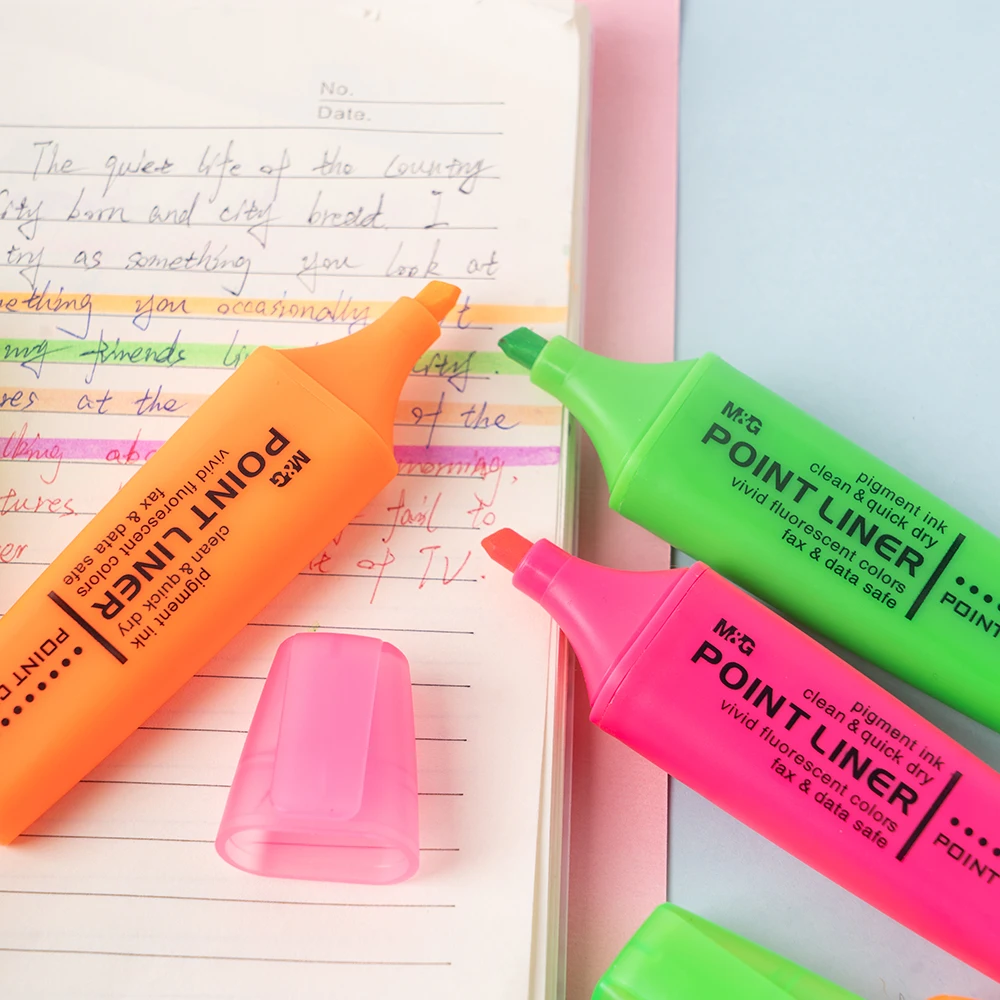 No.
Date.
The quiet life of the country
City born and city bread. I
try as something you look at
ething you occasionally t
my friends li city.
res at the of the
lking abo morning,
tures fail to
er t of TV.
M&G
POINT LINER
pigment ink
clean & quick dry
vivid fluorescent colors
fax & data safe
POINT
M&G
POINT LINER
pigment ink
clean & quick dry
vivid fluorescent colors
fax & data safe
POINT
M&G
POINT LINER
pigment ink
clean & quick dry
vivid fluorescent colors
fax & data safe
POINT